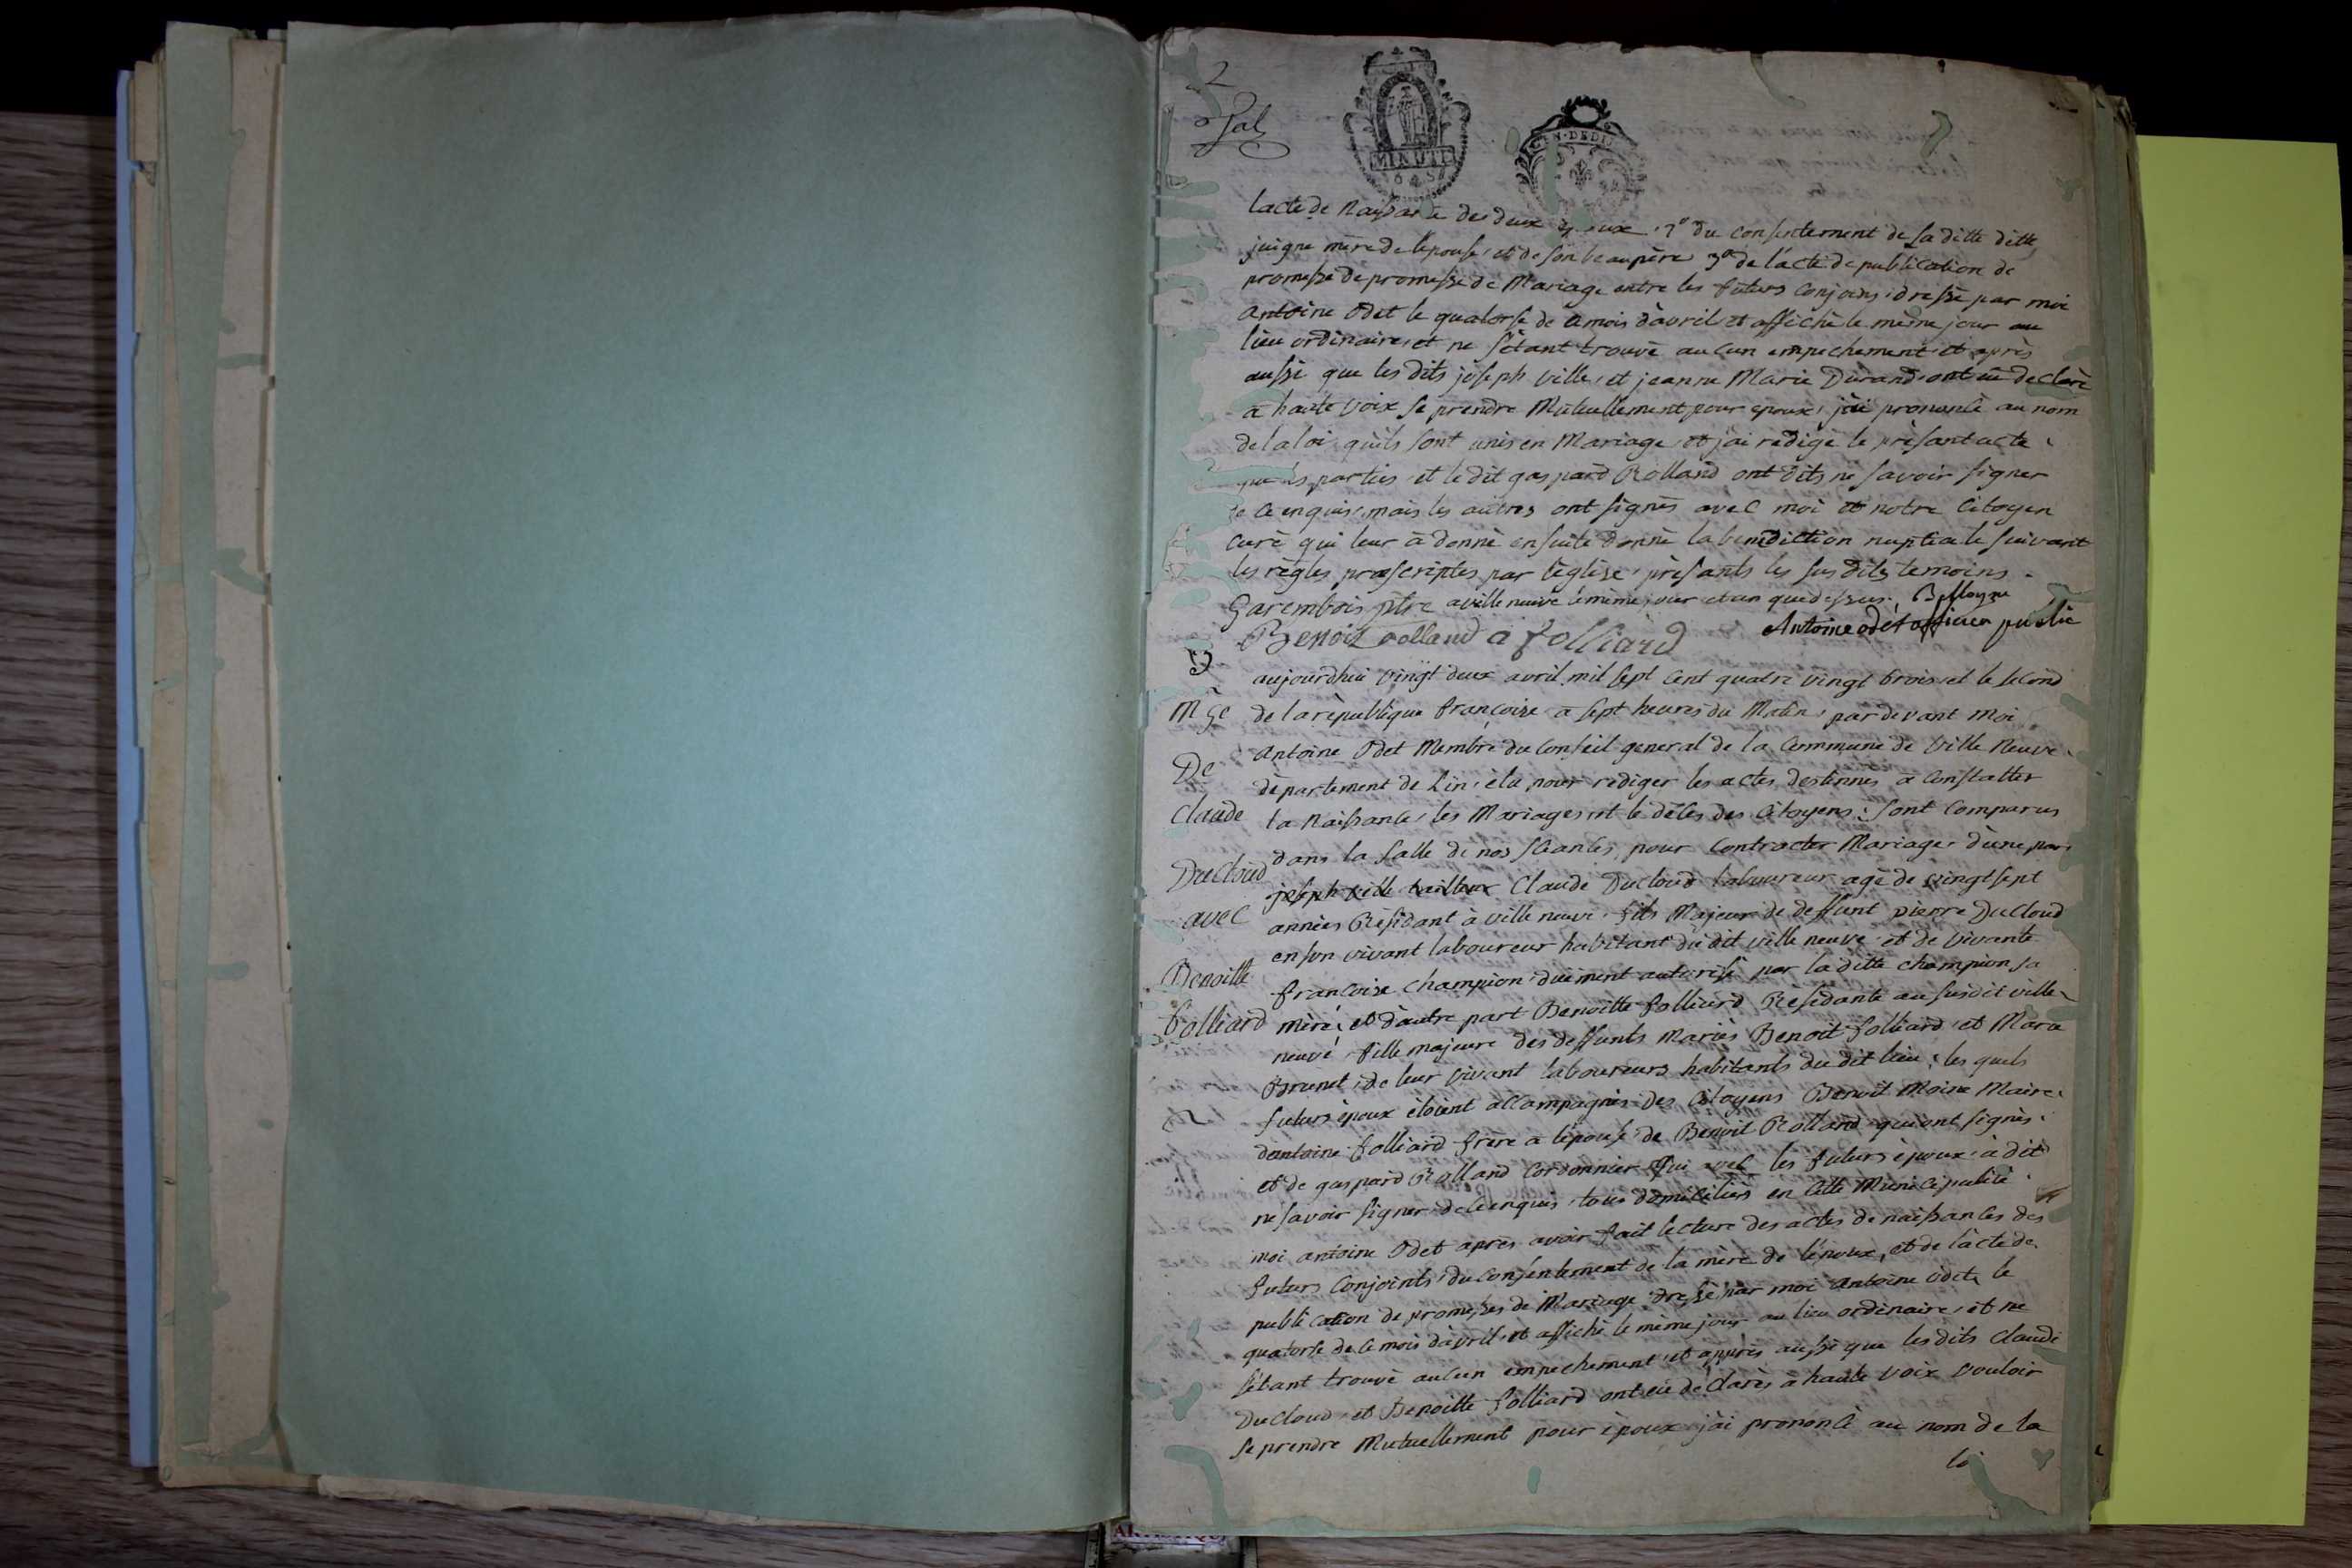 2
MINUTE
N·DEDU
lacte de Naissance des deux epoux, 2º du consentement de sa ditte ditte
juigne mère de lepouse, et de son beaupère 3º de lacte de publication de
promesse de promesse de Mariage entre les futurs conjoins, dressé par moi
antoine Odet le quatorse de ce mois d'avril et affiché le même jour au
lieu ordinaire, et ne s'étant trouvé aucun empechement, et après
aussi que les dits joseph ville, et jeanne Marie Durand, ont eû declaré
à haute voix se prendre Mutuellement pour epoux, j'ai prononcé au nom
de la loi, qu'ils sont unis en Mariage, et j'ai rédigé le présant acte,
parties et le dit gaspard Rolland ont dits ne savoir signer
de ce enquis, mais les autres ont signés avec moi et notre Citoyen
curé qui leur à donné ensuite donné la benediction nuptiale suivant
les règles prescriptes par léglise, présants les susdits temoins.
Garembois ptre a villeneuve le même jour et an que dessus. B Moyne
Benoit Rolland a folliard Antoine odet officier public
aujourdhui vingt deux avril mil sept cent quatre vingt trois, et le second
Mge de la république françoise à sept heures du Matin, par devant Moi
antoine Odet Membre du Conseil general de la Commune de Ville Neuve,
De
département de Lin, élu pour rediger les actes destinnes à Constatter
Claude la Naissance, les Mariages, et le décès des Citoyens: sont comparus
dans la salle de nos séances, pour contracter Mariage, d'une part
Ducloud
joseph ville tailleur Claude Ducloud laboureur agé de vingt sept
avec années Résidant à ville neuve, fils Majeur de deffunt pierre Ducloud
en son vivant laboureur habitant du dit ville neuve, et de vivante
Benoitte françoise Champion, duement autorisé par la ditte champion sa
folliard mère, et d'autre part Benoitte folliard Résidante au susdit ville
neuve, fille majeure des deffunts Mariés Benoit folliard, et Marie
Brunet, de leur vivant laboureurs habitants du dit lieu, les quels
futurs époux étoient accompagnés des Citoyens Benoit Moine Maire,
d'antoine folliard frère a lépouse, de Benoit Rolland qui ont signés,
et de gaspard Rolland Cordonnier qui avec les futurs époux, à dit
ne savoir signer de ce enquis, tous domiciliés en cette Municipalité.
moi antoine Odet après avoir fait lecture des actes de naissances des
futurs Conjoints, du consentement de la mère de l'époux, et de lacte de
publication de promesses de Mariage, dressé par moi antoine Odet, le
quatorse de ce mois d'avril, et affiché le même jour au lieu ordinaire, et ne
s'étant trouvé aucun empechement, et après aussi que les dits Claude
Ducloud, et Benoitte folliard ont eû déclarés à haute voix vouloir
se prendre Mutuellement pour époux, j'ai prononcé au nom de la
loi